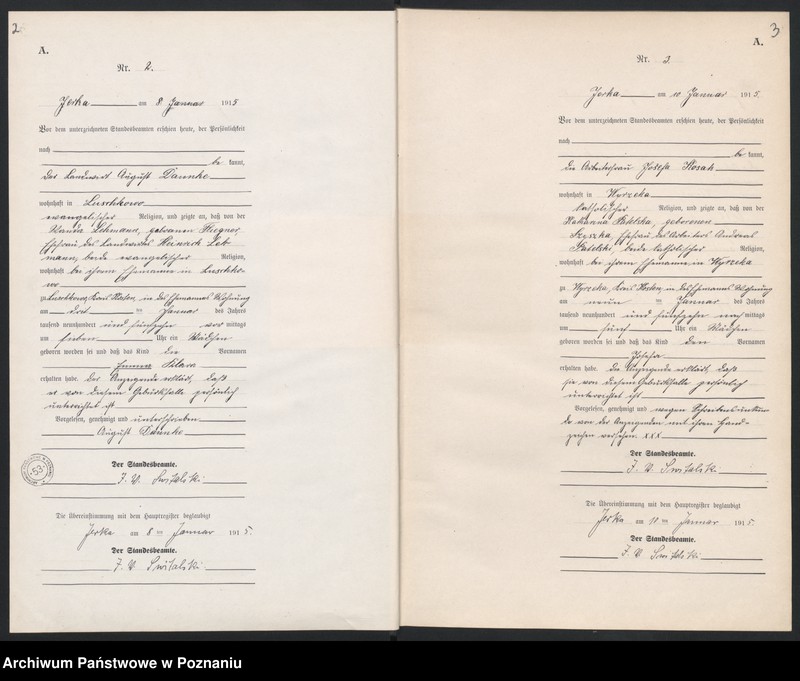 2
A.
Nr. 2.
Jerka am 8. Januar 1915
Vor dem unterzeichneten Standesbeamten erschien heute, der Persönlichkeit
nach
be kannt,
der Landwirt August Daumke
wohnhaft in Luschkowo
evangelischer Religion, und zeigte an, daß von der
Wanda Lehmann, geborenen
Ehefrau des Landwirts Heinrich Leh
mann, beide evangelischer Religion,
wohnhaft bei ihrem Ehemanne in Luschko-
wo
zu Luschkowo, Kreis Kosten, in des Ehemannes Wohnung
am drei ten Januar des Jahres
tausend neunhundert und fünfzehn vor mittags
um sieben Uhr ein Mädchen
geboren worden sei und daß das Kind die Vornamen
Emma
erhalten habe. Der Anzeigende erklärt, daß
er von diesem Geburtsfalle persönlich
unterrichtet ist
Vorgelesen, genehmigt und unterschrieben
August Daumke
Der Standesbeamte.
J. V. Switalski
Die Übereinstimmung mit dem Hauptregister beglaubigt
Jerka am 8 ten Januar 1915.
Der Standesbeamte.
J. V. Switalski
53
3
A.
Nr. 3.
Jerka am 10. Januar 1915.
Vor dem unterzeichneten Standesbeamten erschien heute, der Persönlichkeit
nach
be kannt,
die Arbeiterfrau Josefa Kosak
wohnhaft in Wyrzeka
katholischer Religion, und zeigte an, daß von der
Katharina geborenen
Ehefrau des Arbeiters Andreas
beide katholischer Religion,
wohnhaft bei ihrem Ehemanne in Wyrzeka
zu Wyrzeka, Kreis Kosten, in des Ehemannes Wohnung
am neun ten Januar des Jahres
tausend neunhundert und fünfzehn nach mittags
um fünf Uhr ein Mädchen
geboren worden sei und daß das Kind den Vornamen
Josefa
erhalten habe. Die Anzeigende erklärt, daß
sie von diesem Geburtsfalle persönlich
unterrichtet ist
Vorgelesen, genehmigt und wegen Schreibensunkun
de von der Anzeigenden mit ihrem Hand-
zeichen versehen. xxx
Der Standesbeamte.
J. V. Switalski
Die Übereinstimmung mit dem Hauptregister beglaubigt
Jerka am 10 ten Januar 1915.
Der Standesbeamte.
J. V. Switalski
Archiwum Państwowe w Poznaniu